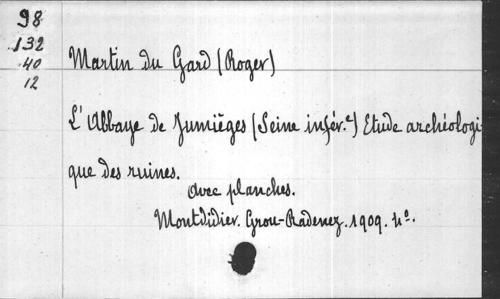 98
132
40
12
Martin du Gard (Roger)
L'Abbaye de Jumièges (Seine infér.e) Etude archéologi-
que des ruines.
avec planches.
Montdidier. Grou-Radenez. 1909. 4º.